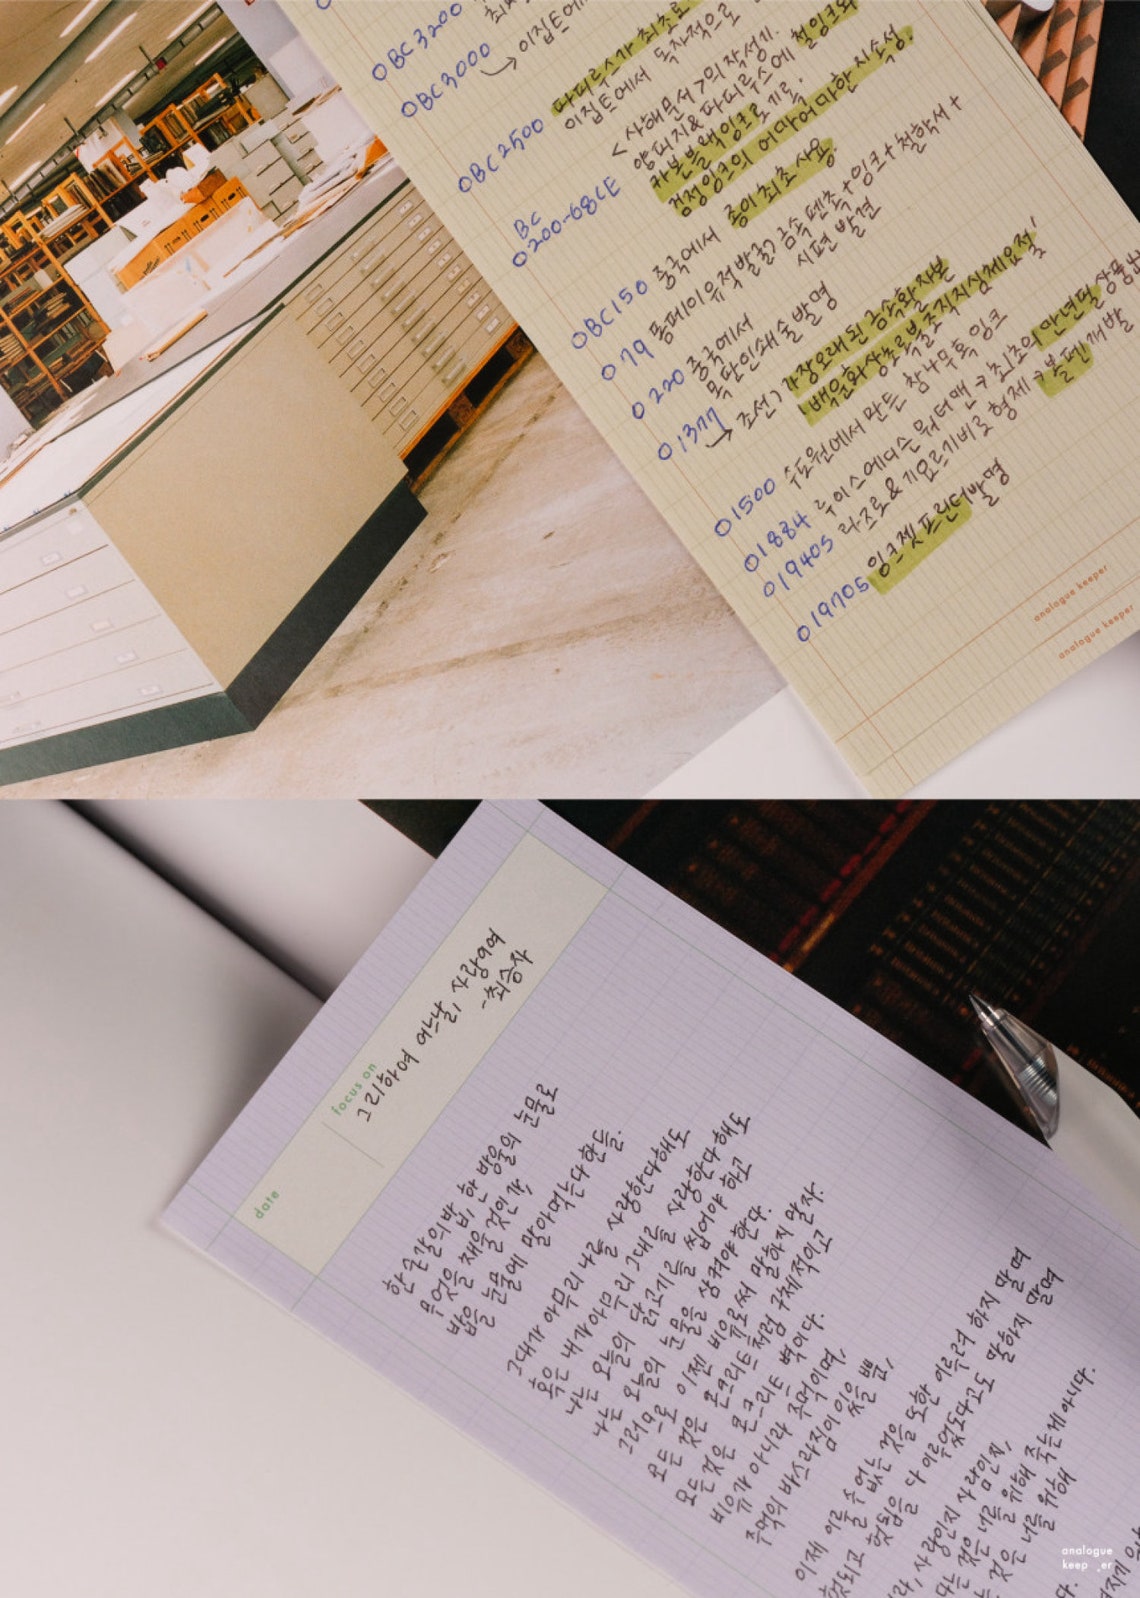 OBC3200
OBC3000
→ 이집트에
OBC2500 파피루스가 최초로
이집트에서 독자적으로
BC
O200-68CE <사해문서>의 작성기.
양피지&파피루스에 철잉크와
카본블랙잉크로 기록.
검정잉크의 어마어마한 지속성.
OBC150 중국에서 종이 최초 사용.
O79 폼페이유적발굴? 금속펜촉+잉크+철학서+
시편 발견
O220 중국에서
목단인쇄술 발명
O1377 조선? 가장오래된 금속활자본
→ '백운화상초록불조직지심체요절'
O1500 수도원에서 만든 참나무혹 잉크
O1884 루이스에디슨 워터맨 → 최초의 만년필 상품화
O1940s 라즈로&기요르기비로형제 → 볼펜 개발
O1970s 잉크젯프린터발명
analogue keeper
analogue keeper
date
focus on
그리하여 어느날, 사랑이여
-최승자
한 숟갈의 밥, 한 방울의 눈물로
무엇을 채울 것인가,
밥을 눈물에 말아먹는다 한들.
그대가 아무리 나를 사랑한다해도
혹은 내가 아무리 그대를 사랑한다해도
나는 오늘의 닭고기를 씹어야 하고
나는 오늘의 눈물을 삼켜야 한다.
그러므로 이젠 비유로써 말하지 말자.
모든 것은 콘크리트처럼 구체적이고
모든 것은 콘크리트 벽이다.
비유가 아니라 주먹이며,
주먹의 바스라짐이 있을 뿐,
이제 이룰 수 없는 것을 또한 이루려 하지 말며
헛되고 헛됨을 다 이루었도다고도 말하지 말며
라, 사랑인지 사람인지,
다는 것은 너를 위해 죽는 게 아니다.
는 것은 너를 위해
다.
analogue
keep_er